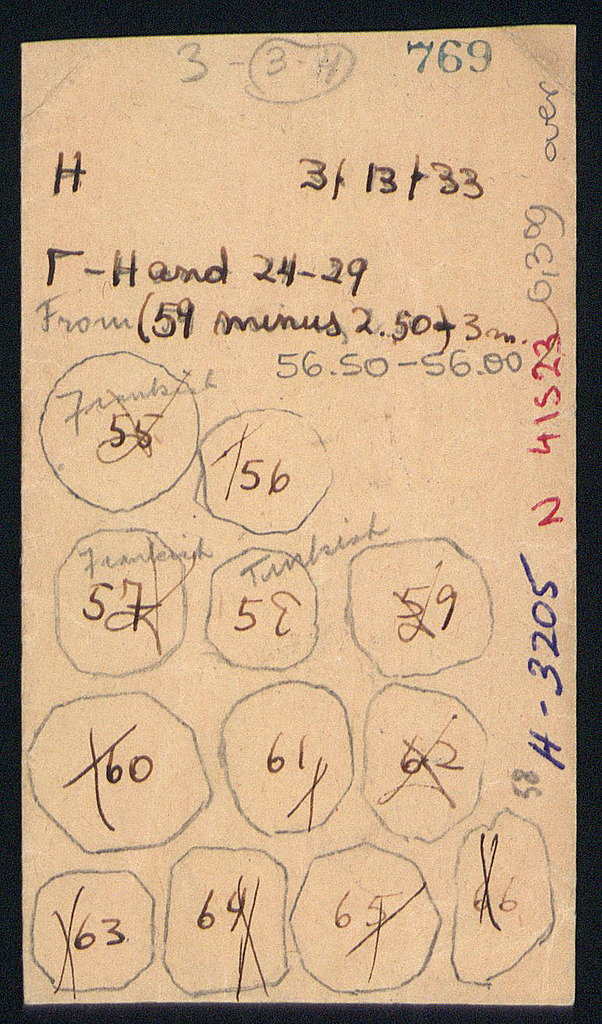 3 - 3-4
769
H 3/13/33
Γ-Hand 24-29
From (59 minus 2.50) + 3 m.
56.50-56.00
Frankish
55
56
Frankish
57
Turkish
58
59
60
61
62
63
64
65
66
H-3205
58
2 41523
0,39g
over